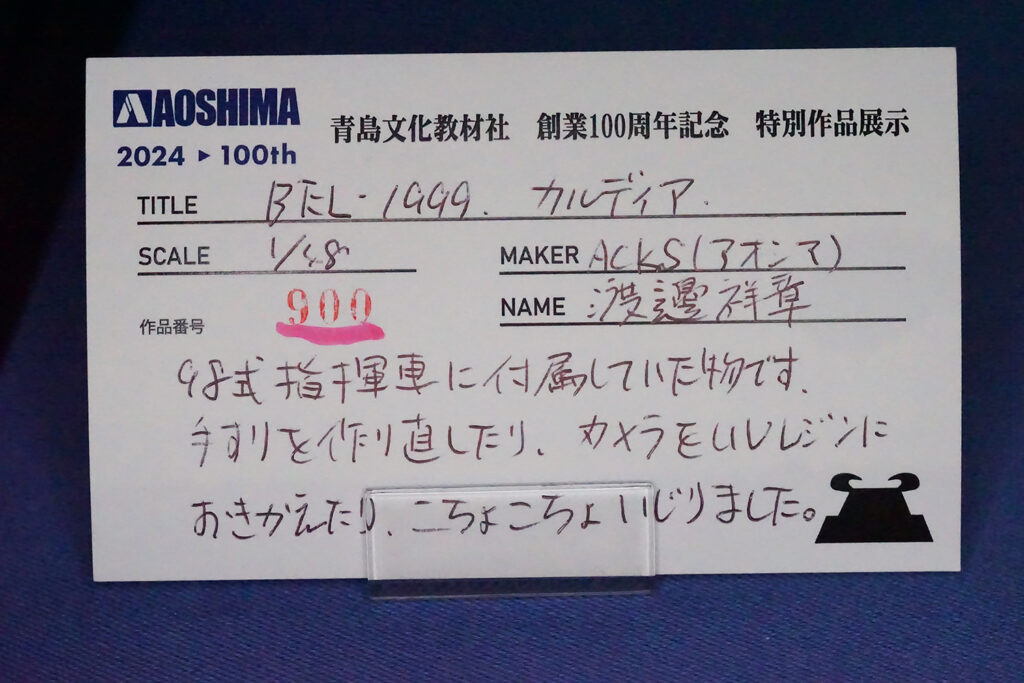 AOSHIMA
2024 ▶ 100th
青島文化教材社 創業100周年記念 特別作品展示
TITLE BEL-1999. カルディア.
SCALE 1/48
MAKER ACKS(アオシマ)
NAME 渡邊祥章
作品番号 900
98式指揮車に付属していた物です.
手すりを作り直したり、カメラをUVレジンに
おきかえたり、こちょこちょいじりました。